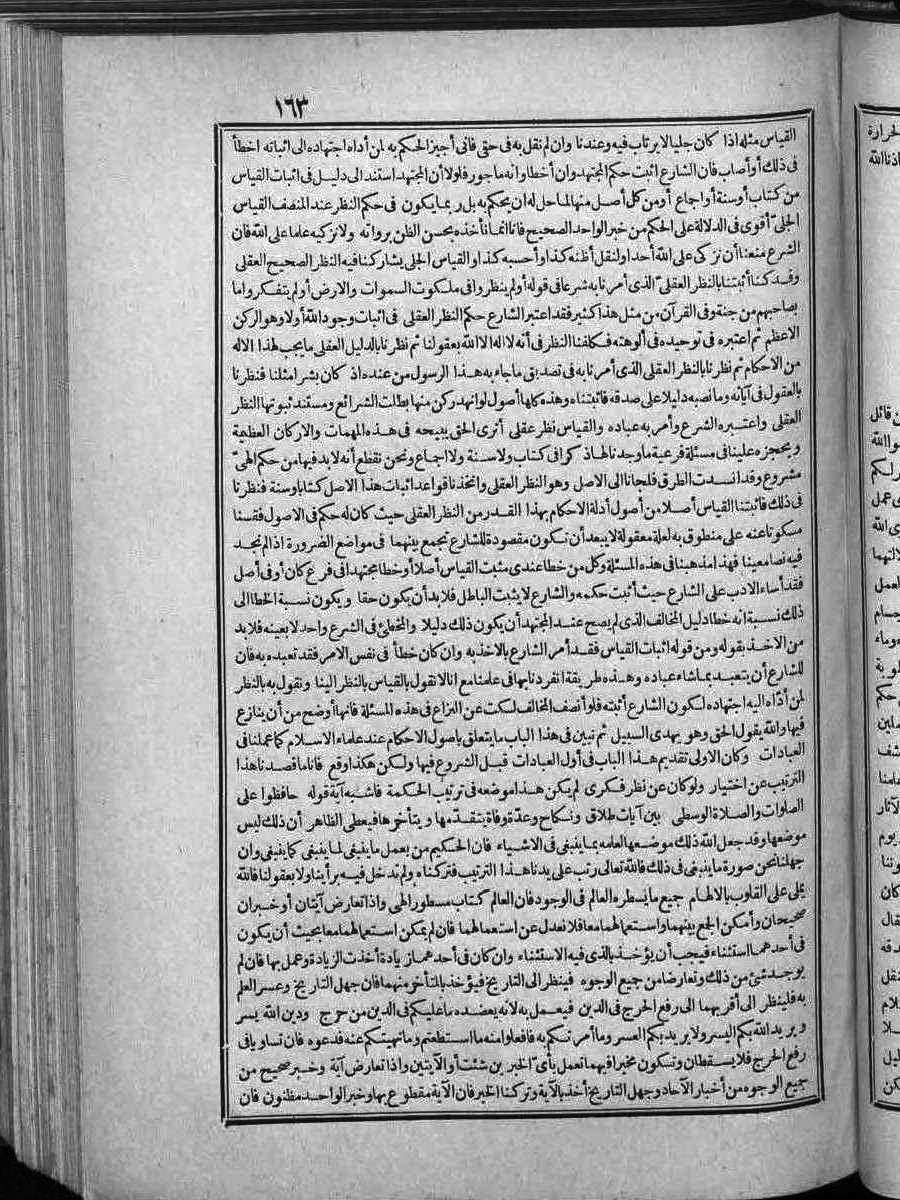 ١٦٣
القياس مثله اذا كان جليا لا يرتاب فيه وعندنا وان لم نقل به فى حقى فانى أجيز الحكم به لمن أداه اجتهاده الى اثباته اخطأ
فى ذلك أو أصاب فان الشارع اثبت حكم المجتهد وان أخطأ وانه مأجور فلولا أن المجتهد استند الى دليل فى اثبات القياس
من كتاب أو سنة أو اجماع أو من كل أصل منها لما حل له ان يحكم به بل ربما يكون فى حكم النظر عند المنصف القياس
الجلىّ أقوى فى الدلالة على الحكم من خبر الواحد الصحيح فانا انما نأخذه بحسن الظن برواته ولا نزكيه علما على الله فان
الشرع منعنا أن نزكى على الله أحدا ولنقل أظنه كذا وأحسبه كذا والقياس الجلى يشاركنا فيه النظر الصحيح العقلى
وقد كنا أثبتنا بالنظر العقلىّ الذى أمرنا به شرعا فى قوله أولم ينظروا فى ملكوت السموات والارض أولم يتفكروا ما
بصاحبهم من جنة وفى القرآن من مثل هذا كثير فقد اعتبر الشارع حكم النظر العقلى فى اثبات وجود الله أولا وهو الركن
الاعظم ثم اعتبره فى توحيده فى ألوهته فكلفنا النظر فى أنه لا اله الا الله بعقولنا ثم نظرنا بالدليل العقلى ما يجب لهذا الاله
من الاحكام ثم نظرنا بالنظر العقلى الذى أمرنا به فى تصديق ما جاء به هذا الرسول من عنده اذ كان بشرا مثلنا فنظرنا
بالعقول فى آياته وما نصبه دليلا على صدقه فاثبتناه وهذه كلها أصول لو انهد ركن منها بطلت الشرائع ومستند ثبوتها النظر
العقلى واعتبره الشرع وأمر به عباده والقياس نظر عقلى أترى الحق يبيحه فى هذه المهمات والاركان العظيمة
ويحجزه علينا فى مسئلة فرعية ما وجدنا لها ذكرا فى كتاب ولا سنة ولا اجماع ونحن نقطع أنه لا بد فيها من حكم الهىّ
مشروع وقد انسدت الطرق فلجأنا الى الاصل وهو النظر العقلى واتخذنا قواعد اثبات هذا الاصل كتابا وسنة فنظرنا
فى ذلك فاثبتنا القياس أصلا من أصول أدلة الاحكام بهذا القدر من النظر العقلى حيث كان له حكم فى الاصول فقسنا
مسكوتا عنه على منطوق به لعلة معقولة لا يبعد أن تكون مقصودة للشارع تجمع بينهما فى مواضع الضرورة اذا لم نجد
فيه نصا معينا فهذا مذهبنا فى هذه المسئلة وكل من خطأ عندى مثبت القياس أصلا أو خطأ مجتهدا فى فرع كان أو فى أصل
فقد أساء الادب على الشارع حيث أثبت حكمه والشارع لا يثبت الباطل فلا بد أن يكون حقا ويكون نسبة الخطأ الى
ذلك نسبة انه خطأ دليل المخالف الذى لم يصح عند المجتهد أن يكون ذلك دليلا والمخطئ فى الشرع واحد لا بعينه فلا بد
من الاخذ بقوله ومن قوله اثبات القياس فقد أمر الشارع بالاخذ به وان كان خطأ فى نفس الامر فقد تعبده به فان
للشارع أن يتعبد بما شاء عباده وهذه طريقة انفردنا بها فى علمنا مع انا لا نقول بالقياس بالنظر الينا ونقول به بالنظر
لمن أدّاه اليه اجتهاده لكون الشارع أثبته فلو أنصف المخالف لسكت عن النزاع فى هذه المسئلة فانها أوضح من أن ينازع
فيها والله يقول الحق وهو يهدى السبيل ثم نبين فى هذا الباب ما يتعلق باصول الاحكام عند علماء الاسلام كما عملنا فى
العبادات وكان الاولى تقديم هذا الباب فى أول العبادات قبل الشروع فيها ولكن هكذا وقع فانا ما قصدنا هذا
الترتيب عن اختيار ولو كان عن نظر فكرى لم يكن هذا موضعه فى ترتيب الحكمة فاشبه آية قوله حافظوا على
الصلوات والصلاة الوسطى بين آيات طلاق ونكاح وعدّة وفاة يتقدّمها ويتأخرها فيعطى الظاهر أن ذلك ليس
موضعها وقد جعل الله ذلك موضعها لعلمه بما ينبغى فى الاشياء فان الحكيم من يعمل ما ينبغى لما ينبغى كما ينبغى وان
جهلنا نحن صورة ما ينبغى فى ذلك فالله تعالى رتب على يدنا هذا الترتيب فتركناه ولم ندخل فيه برأينا ولا بعقولنا فالله
يملى على القلوب بالالهام جميع ما يسطره العالم فى الوجود فان العالم كتاب مسطور الهى واذا تعارض آيتان أو خبران
صحيحان وأمكن الجمع بينهما واستعمالهما معا فلا نعدل عن استعمالهما فان لم يمكن استعمالهما معا بحيث أن يكون
فى أحدهما استثناء فيجب أن يؤخذ بالذى فيه الاستثناء وان كان فى أحدهما زيادة أخذت الزيادة وعمل بها فان لم
يوجد شئ من ذلك وتعارضا من جميع الوجوه فينظر الى التاريخ فيؤخذ بالمتأخر منهما فان جهل التاريخ وعسر العلم
به فلينظر الى أقربهما الى رفع الحرج فى الدين فيعمل به لانه يعضده ما عليكم فى الدين من حرج ودين الله يسر
ويريد الله بكم اليسر ولا يريد بكم العسر وما أمرتكم به فافعلوا منه ما استطعتم وما نهيتكم عنه فدعوه فان تساويا فى
رفع الحرج فلا يسقطان وتكون مخيرا فيهما تعمل بأىّ الخبرين شئت أو الآيتين واذا تعارض آية وخبر صحيح من
جميع الوجوه من أخبار الآحاد وجهل التاريخ أخذ بالآية وتركنا الخبر فان الآية مقطوع بها وخبر الواحد مظنون فان